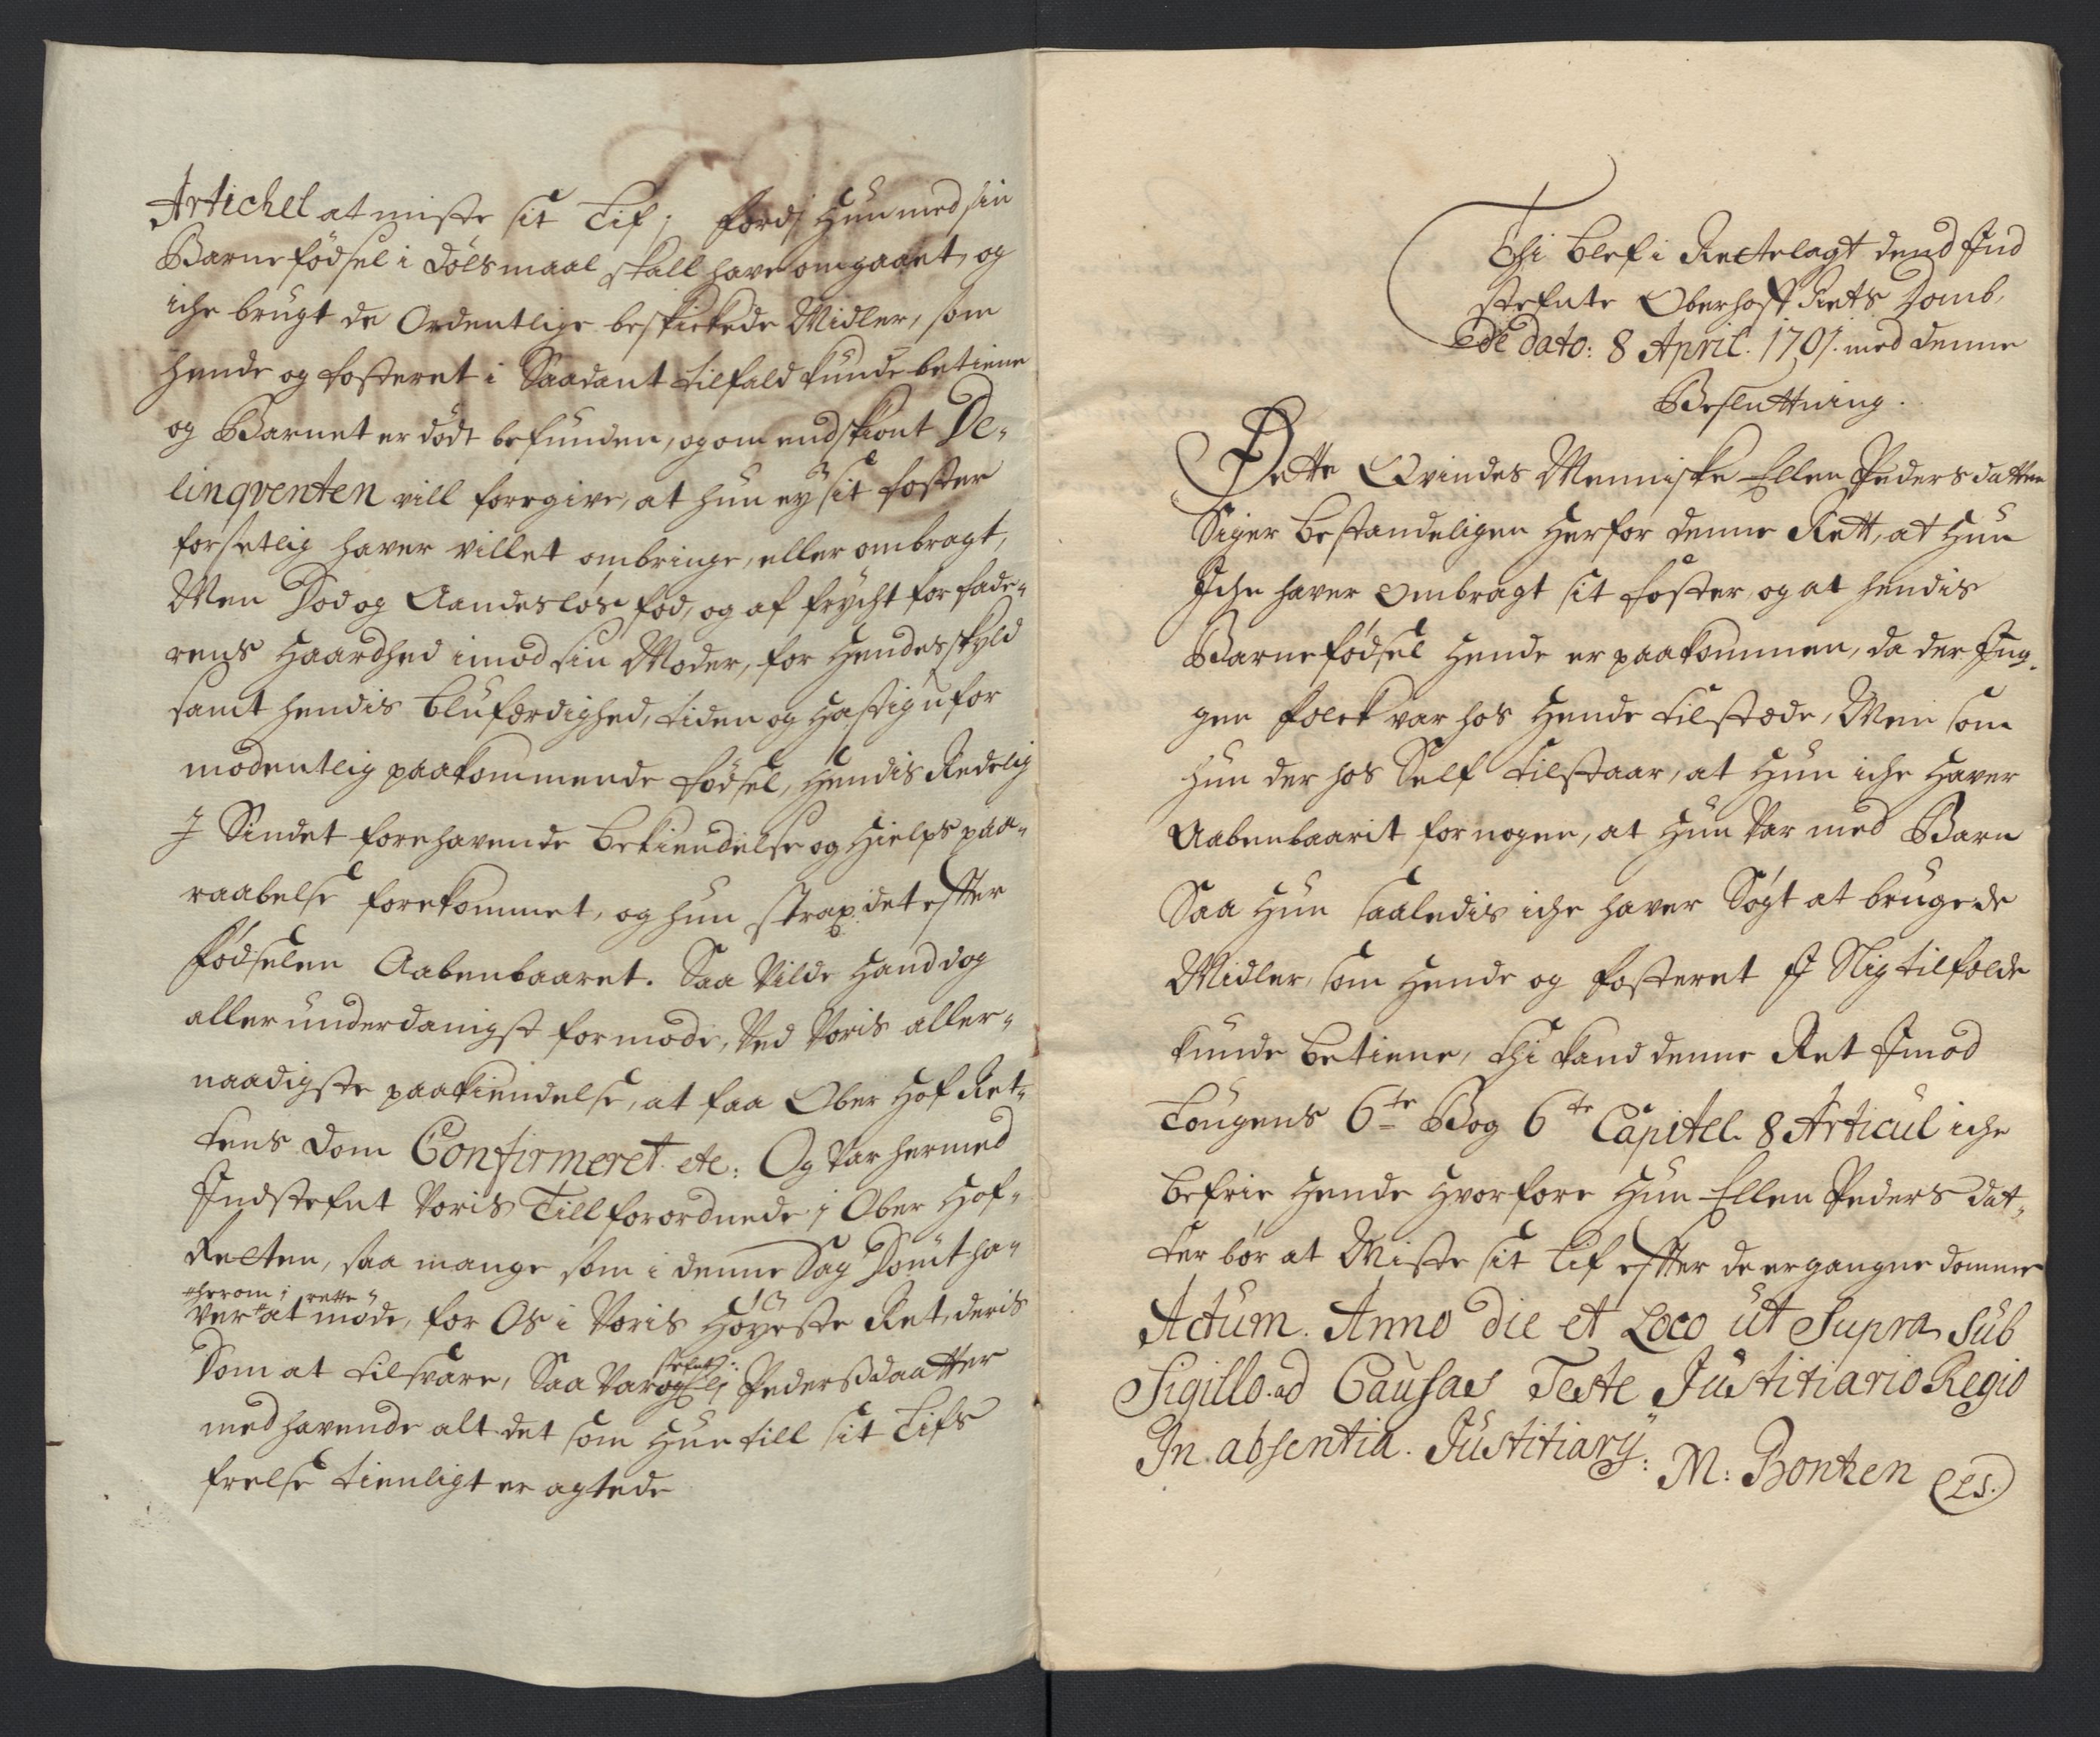 Artichel at miste sit Lif; fordj Hun med sin
Barnefödsel i dölsmaal skall have omgaaet, og
iche brugt de Ordentlige beskickede Midler, som
hende og fosteret i Saadant tilfald kunde betiene
og Barnet er dödt befunden, og om endskiönt De-
linqventen vill foregive, at hun ey sit foster
forsetlig haver villet ombringe, eller ombragt,
Men Död og Aandeslös fød, og af frycht for fade-
rens Haardhed imod sin Moder, for Hendes skyld
samt hendis blufærdighed, tiden og Hastig ufor
modentlig paakommende födsel, Hendis Redelig
J Sindet forehavende bekiendelse og Hielps paa-
raabelse forekommet, og hun strax det effter
födselen Aabenbaaret. Saa Vilde Hand dog
allerunderdanigst formode, Ved Voris aller-
naadigste paakiendelse, at faa Ober Hof Ret-
tens Dom Confirmeret etc: Og var hermed
Indstefnt Voris Tillforordnede i Ober Hof-
Retten, saa mange som i denne Sag Dömt ha-
herom i rette
ver at möde, for Os i Voris Höyeste Ret, deris
Dom at tilsvare, Saa var og Peders daatter
med havende alt det som Hun till sit Lifs
frelse tienligt er agtede
Thi blef i Rettelagt dend Ind
stefnte Oberhoff Rets Domb,
de dato: 8 April. 1707. med denne
Besluttning.
Dette Qvindes Menniske Ellen Peders datter
Siger bestandeligen Herfor denne Rett, at Hun
Iche haver Ombragt sit foster, og at hendis
Barnefödsel Hende er paakommen, da der Ing-
gen folck var hos Hende tilstæde, Men som
Hun der hos Self tilstaar, at Hun iche Haver
Aabenbaarit for nogen, at Hun var med Barn
Saa Hun saaledis iche haver Sögt at bruge de
Midler, som Hende og fosteret J Slig tilfælde
kunde betiene, thi kand denne Ret Imod
Lougens 6te Bog 6te Capitel 8 Articul iche
befrie Hende Hvorfore Hun Ellen Peders dat-
ter bör at Miste sit Lif effter de ergangne domme
Actum. Anno die et Loco ut Supra sub
Sigillo ad Causas Teste Justitiario Regio
In absentia. Justitiarij: M: Bontzen (LS.)